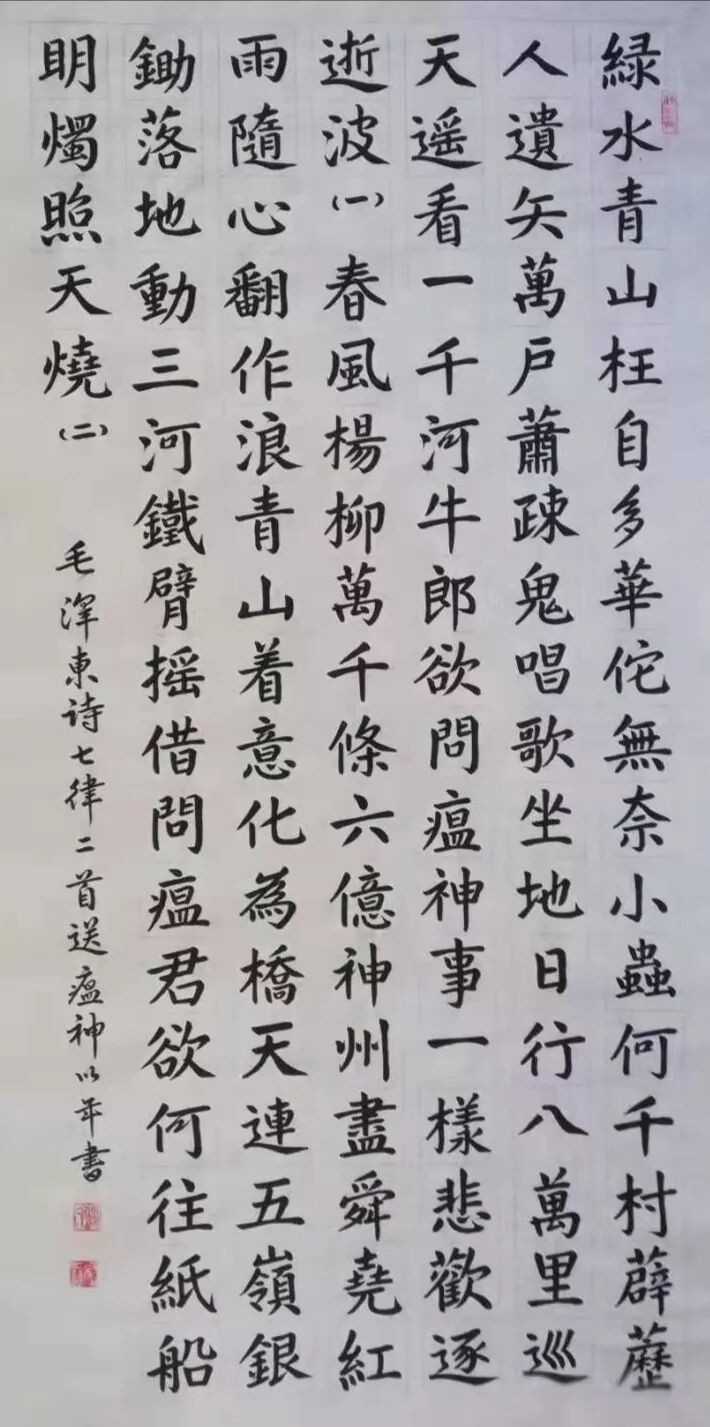 緑水青山枉自多華佗無奈小蟲何千村薜藶
人遺矢萬户蕭疎鬼唱歌坐地日行八萬里巡
天遥看一千河牛郎欲問瘟神事一樣悲歡逐
逝波(一) 春風楊柳萬千條六億神州盡舜堯紅
雨隨心翻作浪青山着意化為橋天連五嶺銀
鋤落地動三河鐵臂摇借問瘟君欲何往紙船
明燭照天燒(二)
毛澤東诗七律二首送瘟神以年書